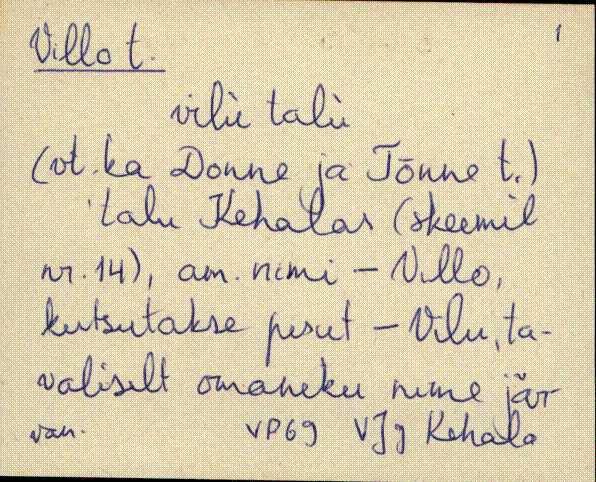 1
Villo t.
vilù talù
(vt. ka Donne ja Tõnne t.)
talu Kehalas (skeemil
nr. 14), am. nimi – Villo,
kutsutakse – Vilu, ta-
valiselt omaneku nime jär
van. VP69 VJg Kehala